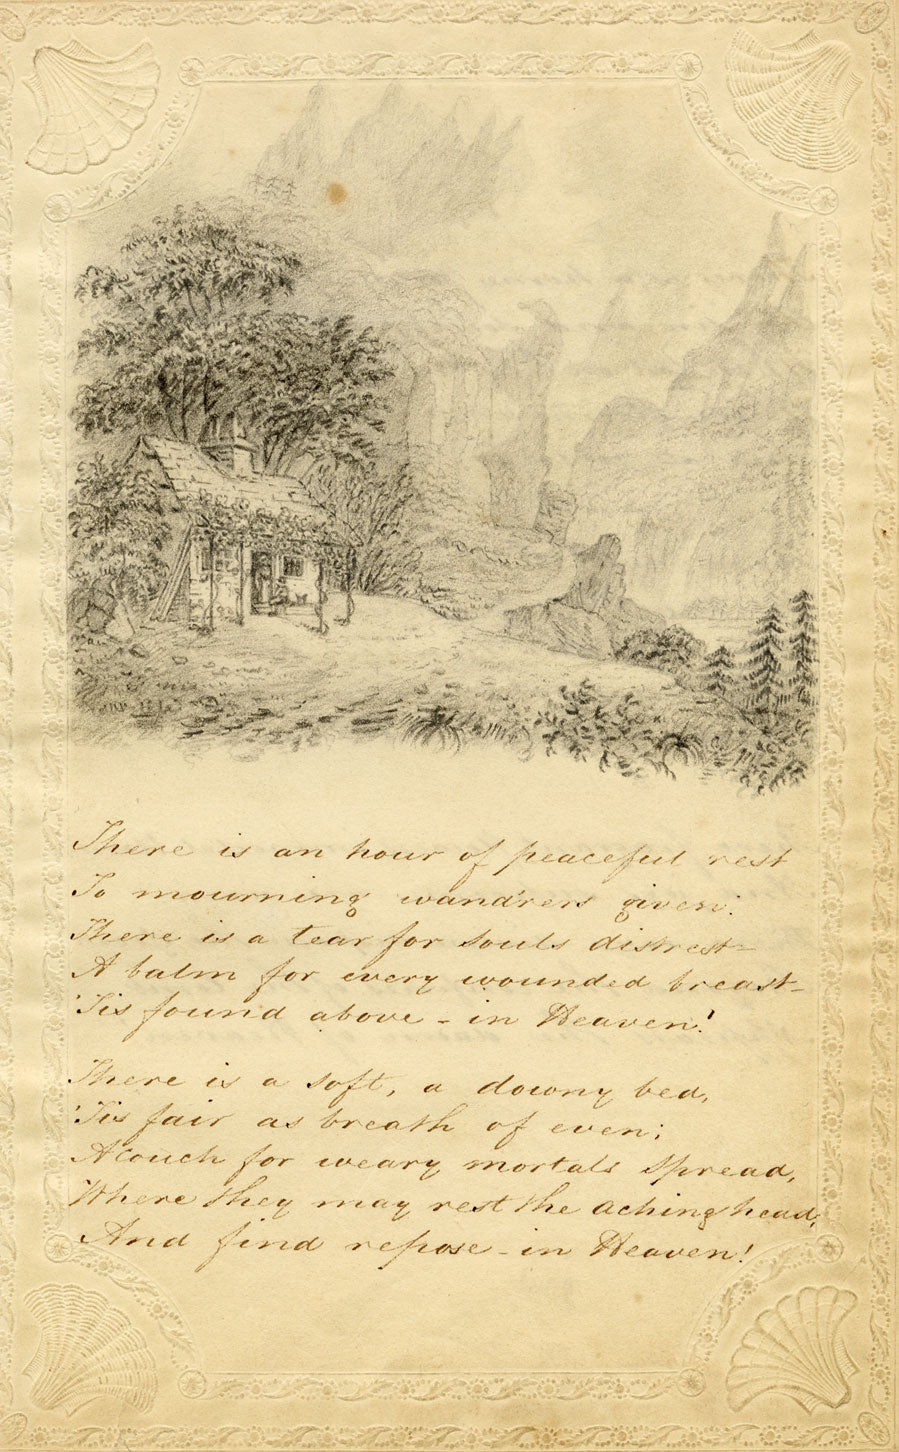 There is an hour of peaceful rest
To mourning wand'rers given:
There is a tear for souls distrest=
A balm for every wounded breast–
'Tis found above – in Heaven!
There is a soft, a downy bed,
'Tis fair as breath of even;
A couch for weary mortals spread,
Where they may rest the aching head,
And find repose – in Heaven!